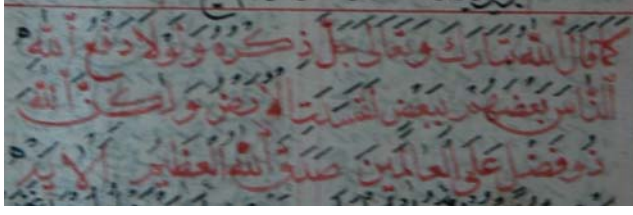 كَمَا قَالَ اللّٰهُ تَبَارَكَ وَتَعَالَىٰ جَلَّ ذِكْرُهُ وَلَوْلَا دَفْعُ اللّٰهِ
النَّاسَ بَعْضَهُمْ بِبَعْضٍ لَفَسَدَتِ الْأَرْضُ وَلَٰكِنَّ اللّٰهَ
ذُو فَضْلٍ عَلَى الْعَالَمِينَ صَدَقَ اللّٰهُ الْعَظِيمُ